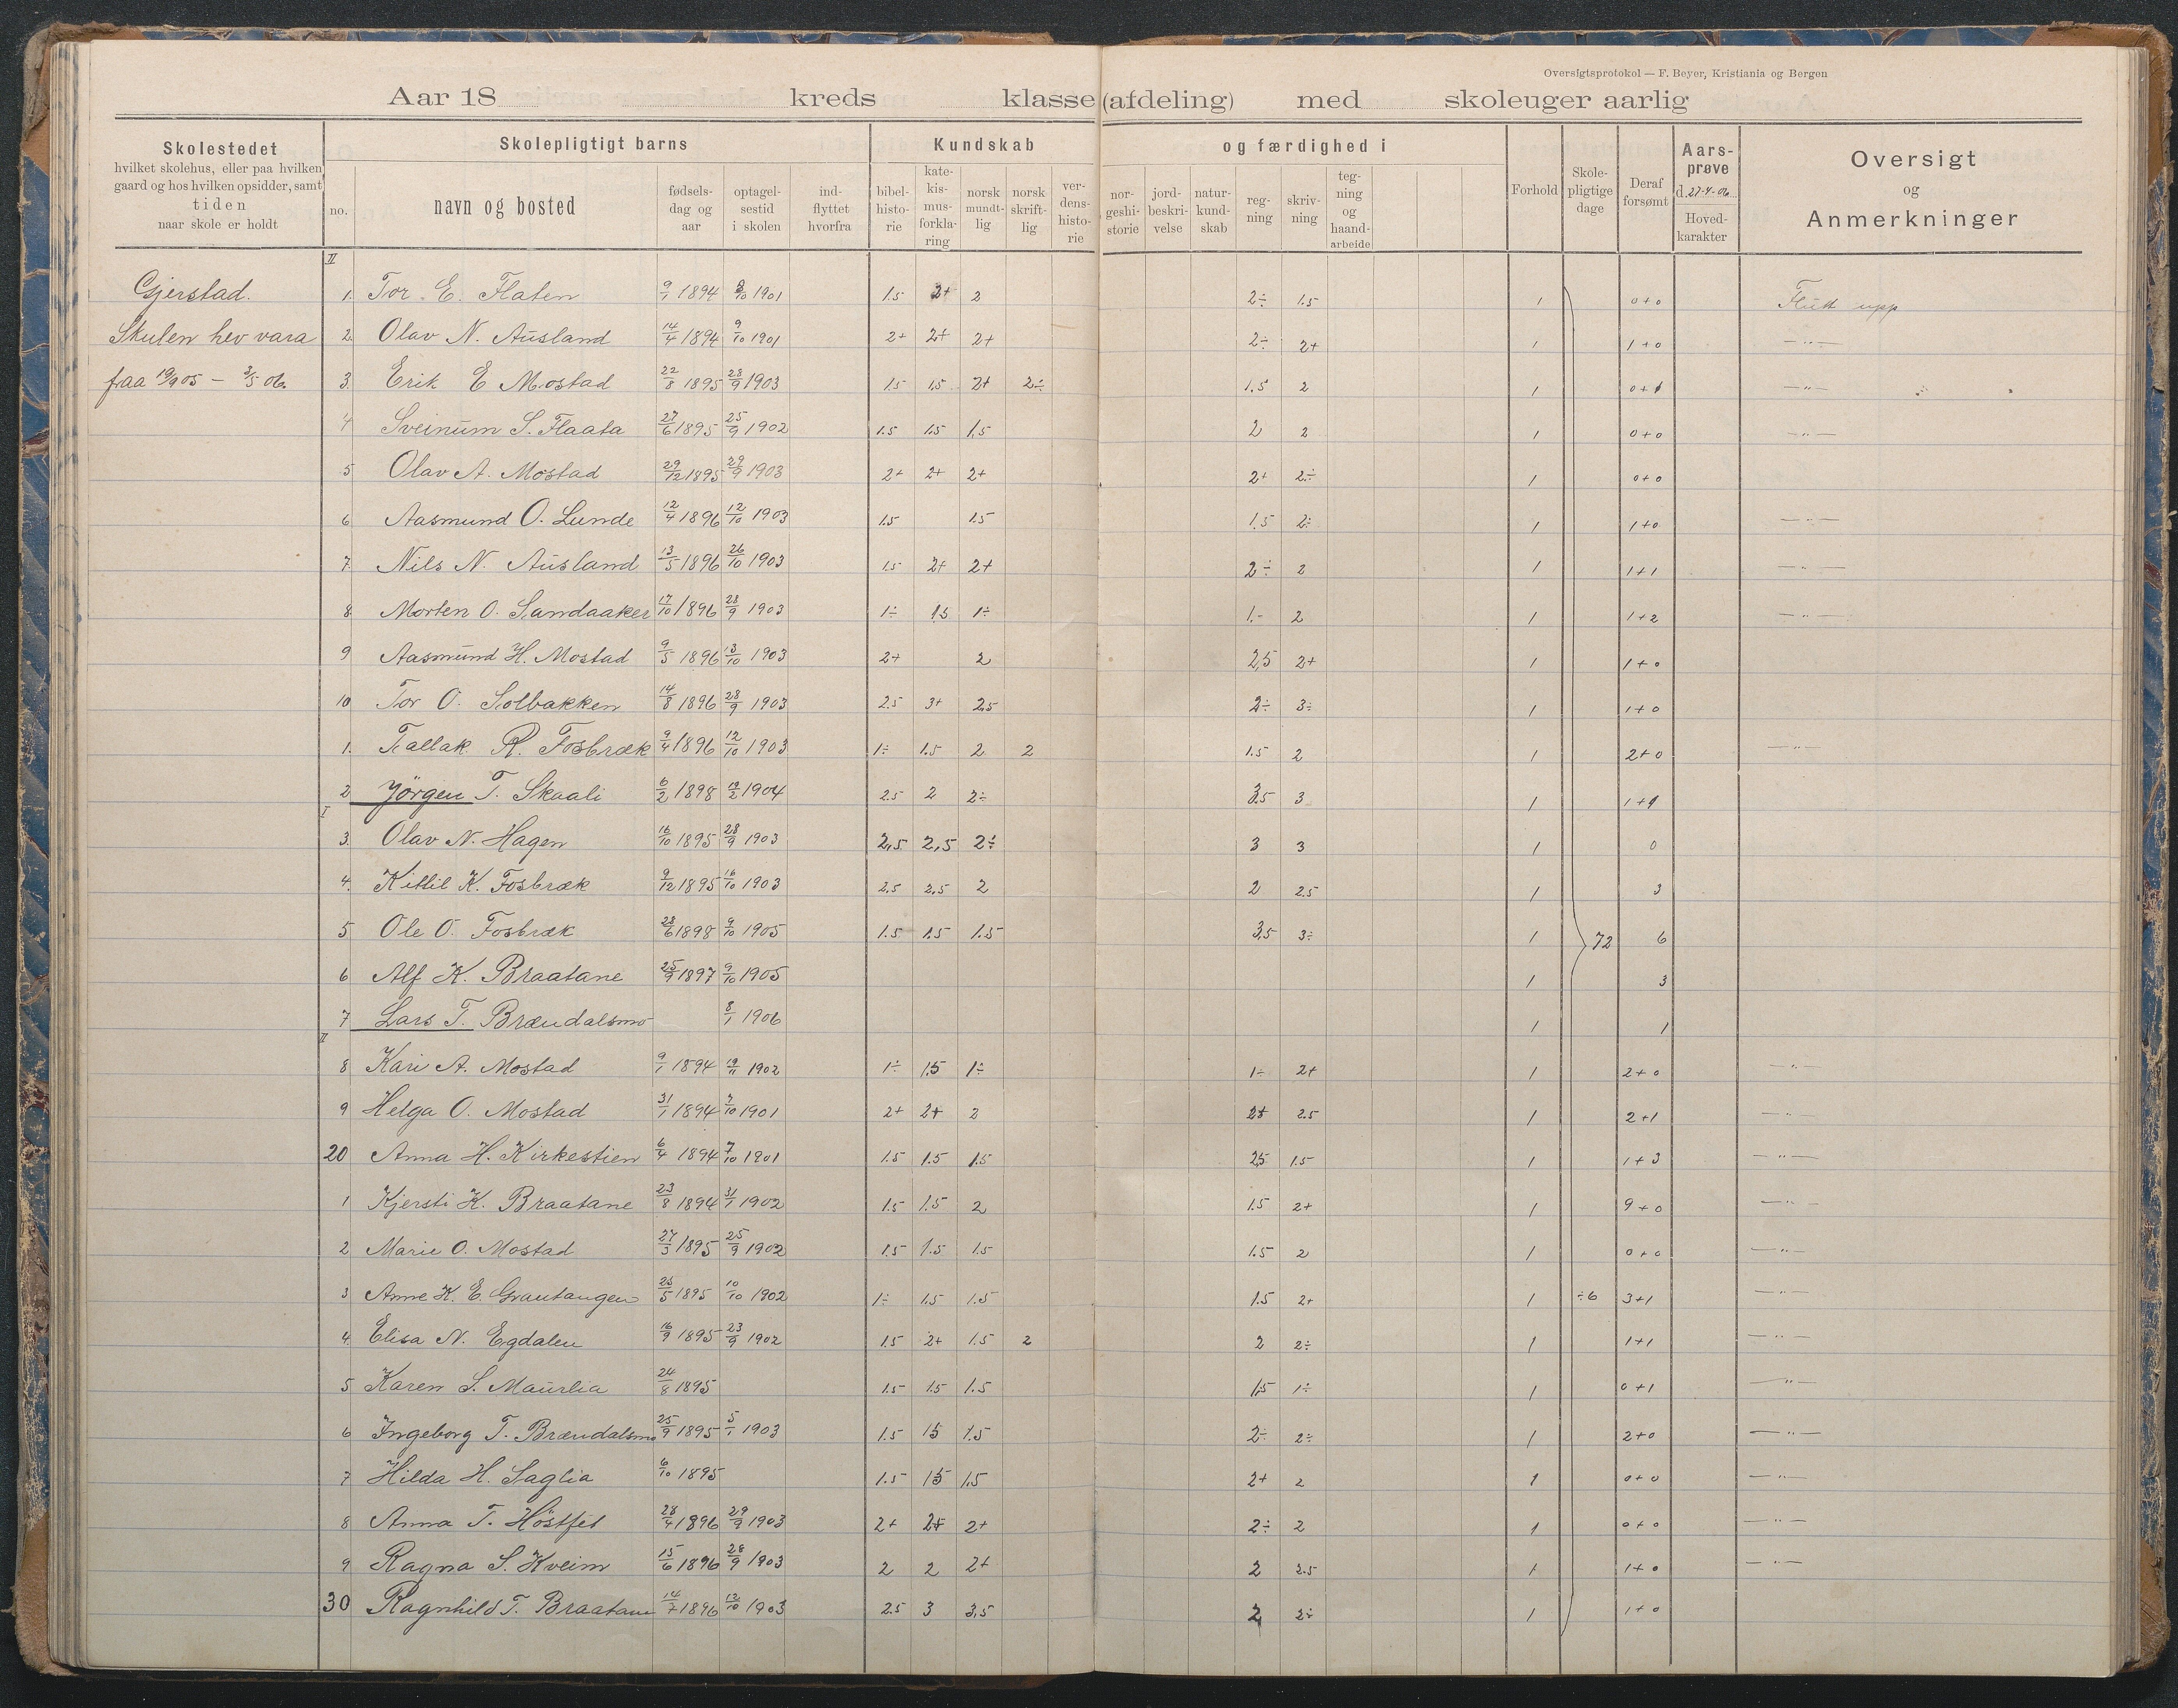 Oversigtsprotokol — F. Beyer, Kristiania og Bergen
Aar 18 kreds klasse (afdeling) med skoleuger aarlig
Skolestedet
hvilket skolehus, eller paa hvilken
gaard og hos hvilken opsidder, samt
tiden
naar skole er holdt
Skolepligtigt barns
no.
navn og bosted
fødsels-
dag og
aar
optagel-
sestid
i skolen
ind-
flyttet
hvorfra
Kundskab
bibel-
histo-
rie
kate-
kis-
mus-
forkla-
ring
norsk
mundt-
lig
norsk
skrift-
lig
ver-
dens-
histo-
rie
og færdighed i
nor-
geshi-
storie
jord-
beskri-
velse
natur-
kund-
skab
reg-
ning
skriv-
ning
teg-
ning
og
haand-
arbeide
Forhold
Skole-
pligtige
dage
Deraf
forsømt
Aars-
prøve
d. 27-4-06
Hoved-
karakter
Oversigt
og
Anmerkninger
Gjerstad.
Skulen hev vara
fraa 19/9 05 — 3/5 06
II
1. Tor E. Flaten 9/1 1894 8/10 1901 1.5 2+ 2 2÷ 1.5 1 0+0 Flutt upp
2. Olav N. Ausland 14/4 1894 9/10 1901 2+ 2+ 2+ 2÷ 2+ 1 1+0 —"—
3. Erik E Mostad 22/8 1895 28/9 1903 1.5 1.5 2+ 2÷ 1.5 2 1 0+1 —"—
4 Sveinum S. Flaata 27/6 1895 25/9 1902 1.5 1.5 1,5 2 2 1 0+0 —"—
5 Olav A. Mostad 29/12 1895 29/9 1903 2+ 2+ 2+ 2+ 2÷ 1 0+0
6 Aasmund O. Lunde 12/4 1896 12/10 1903 1.5 1.5 1.5 2÷ 1 1+0 —"—
7. Nils N. Ausland 13/5 1896 26/10 1903 1.5 2+ 2+ 2÷ 2 1 1+1 —"—
8. Morten O. Sandaaker 17/10 1896 28/9 1903 1÷ 1.5 1÷ 1.- 2 1 1+2 —"—
9 Aasmund H. Mostad 9/5 1896 13/10 1903 2+ 2 2,5 2+ 1 1+0
10 Tor O. Solbakken 14/8 1896 28/9 1903 2.5 3+ 2.5 2÷ 3÷ 1 1+0
1. Tallak R. Fosbræk 9/4 1896 12/10 1903 1÷ 1.5 2 2 1.5 2 1 2+0 —"—
2 Jörgen T. Skaali 6/2 1898 19/2 1904 2.5 2 2÷ 3.5 3 1 1+1
I
3. Olav N. Hagen 16/10 1895 28/9 1903 2,5 2,5 2÷ 3 3 1 0
4. Kittil K. Fosbræk 9/12 1895 16/10 1903 2.5 2.5 2 2 2.5 1 3
5 Ole O. Fosbræk 28/6 1898 9/10 1905 1.5 1.5 1.5 3,5 3÷ 1 72 6
6 Alf K. Braatane 25/9 1897 9/10 1905 1 3
7 Lars T. Brændalsmo 8/1 1906 1 1
II
8 Kari A. Mostad 9/1 1894 19/11 1902 1÷ 1.5 1÷ 1÷ 2+ 1 2+0 —"—
9 Helga O. Mostad 31/1 1894 7/10 1901 2+ 2+ 2 2+ 2.5 1 2+1 —"—
20 Anna H. Kirkestien 6/4 1894 7/10 1901 1.5 1.5 1.5 2,5 1.5 1 1+3 —"—
1 Kjersti K. Braatane 23/8 1894 31/1 1902 1.5 1.5 2 1.5 2+ 1 9+0 —"—
2 Marie O. Mostad 27/3 1895 25/9 1902 1.5 1.5 1.5 1.5 2 1 0+0 —"—
3 Anne K. E. Grautangen 25/5 1895 10/10 1902 1÷ 1.5 1.5 1.5 2+ 1 ÷6 3+1 —"—
4. Elisa N. Egdalen 16/9 1895 23/9 1902 1.5 2+ 1.5 2 2 2÷ 1 1+1 —"—
5 Karen S. Maurlia 24/8 1895 1.5 1.5 1.5 1,5 1÷ 1 0+1 —"—
6 Ingeborg T. Brændalsmo 25/9 1895 5/1 1903 1.5 1.5 1.5 2÷ 2÷ 1 2+0 —"—
7 Hilda H. Saglia 6/10 1895 1.5 1.5 1.5 2+ 2 1 0+0 —"—
8 Anna T. Höstfet 28/4 1896 29/9 1903 2+ 2+ 2+ 2÷ 2 1 0+0 —"—
9 Ragna S. Kveim 15/6 1896 28/9 1903 2 2 2+ 2 2.5 1 1+0 —"—
30 Ragnhild T. Braatane 14/7 1896 12/10 1903 2.5 3 3,5 2 2÷ 1 1+0